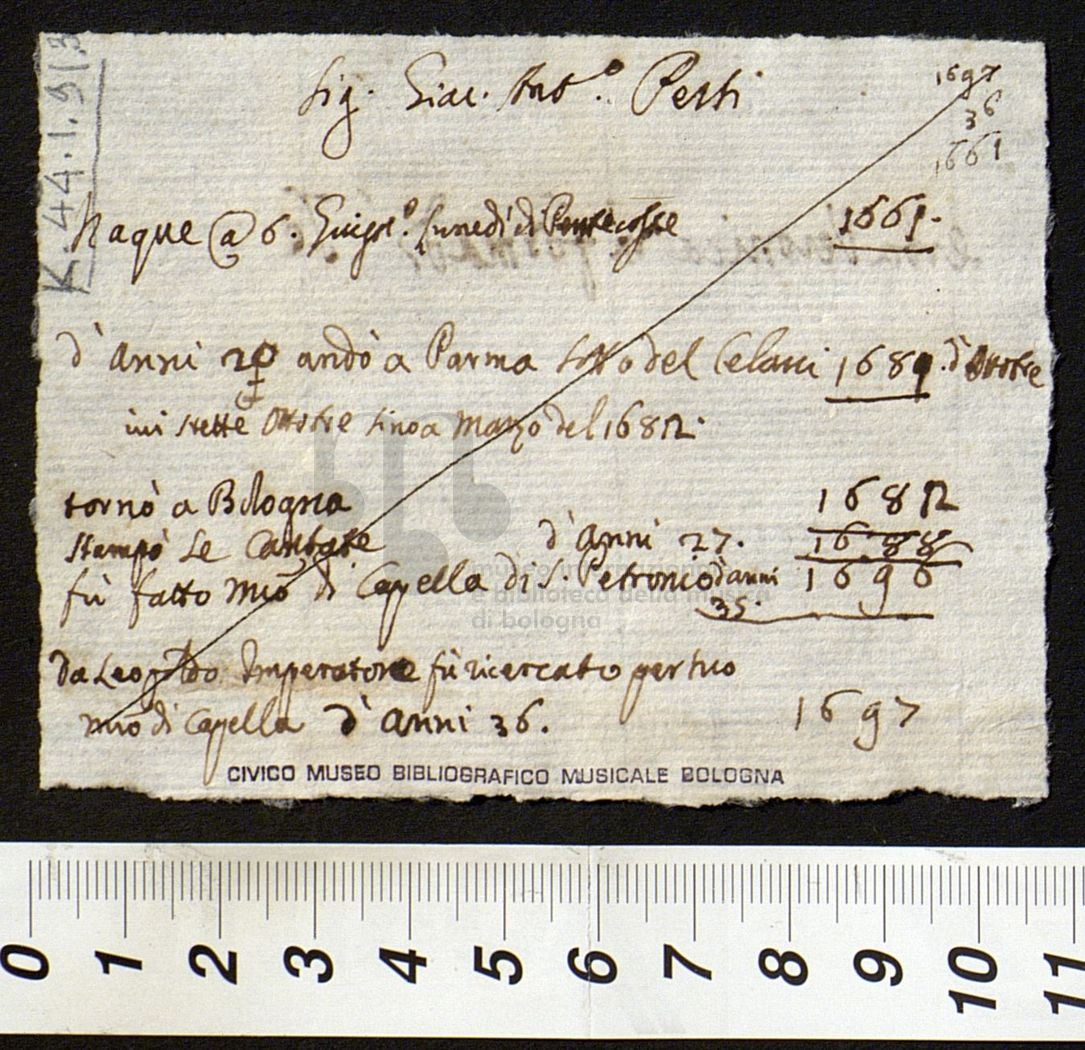 Sig. Giac. Ant.º Perti
1697
36
1661
K.44.1.91/3
Naque @ 6. Giug.º lunedì di Pentecoste 1661.
d'Anni 20 andò a Parma sotto del 1681. d'Ottobre
ivi stette Ottobre sino a Marzo del 1682.
tornò a Bologna 1682
stampò Le Cantate d'Anni 27. 1688
fù fatto Mro di Capella di S. Petronio d'anni 35. 1696
Da Leopoldo Imperatore fù ricercato per suo
mro di Capella d'Anni 36. 1697
museo internazionale
e biblioteca della musica
di bologna
CIVICO MUSEO BIBLIOGRAFICO MUSICALE BOLOGNA
0 1 2 3 4 5 6 7 8 9 10 11